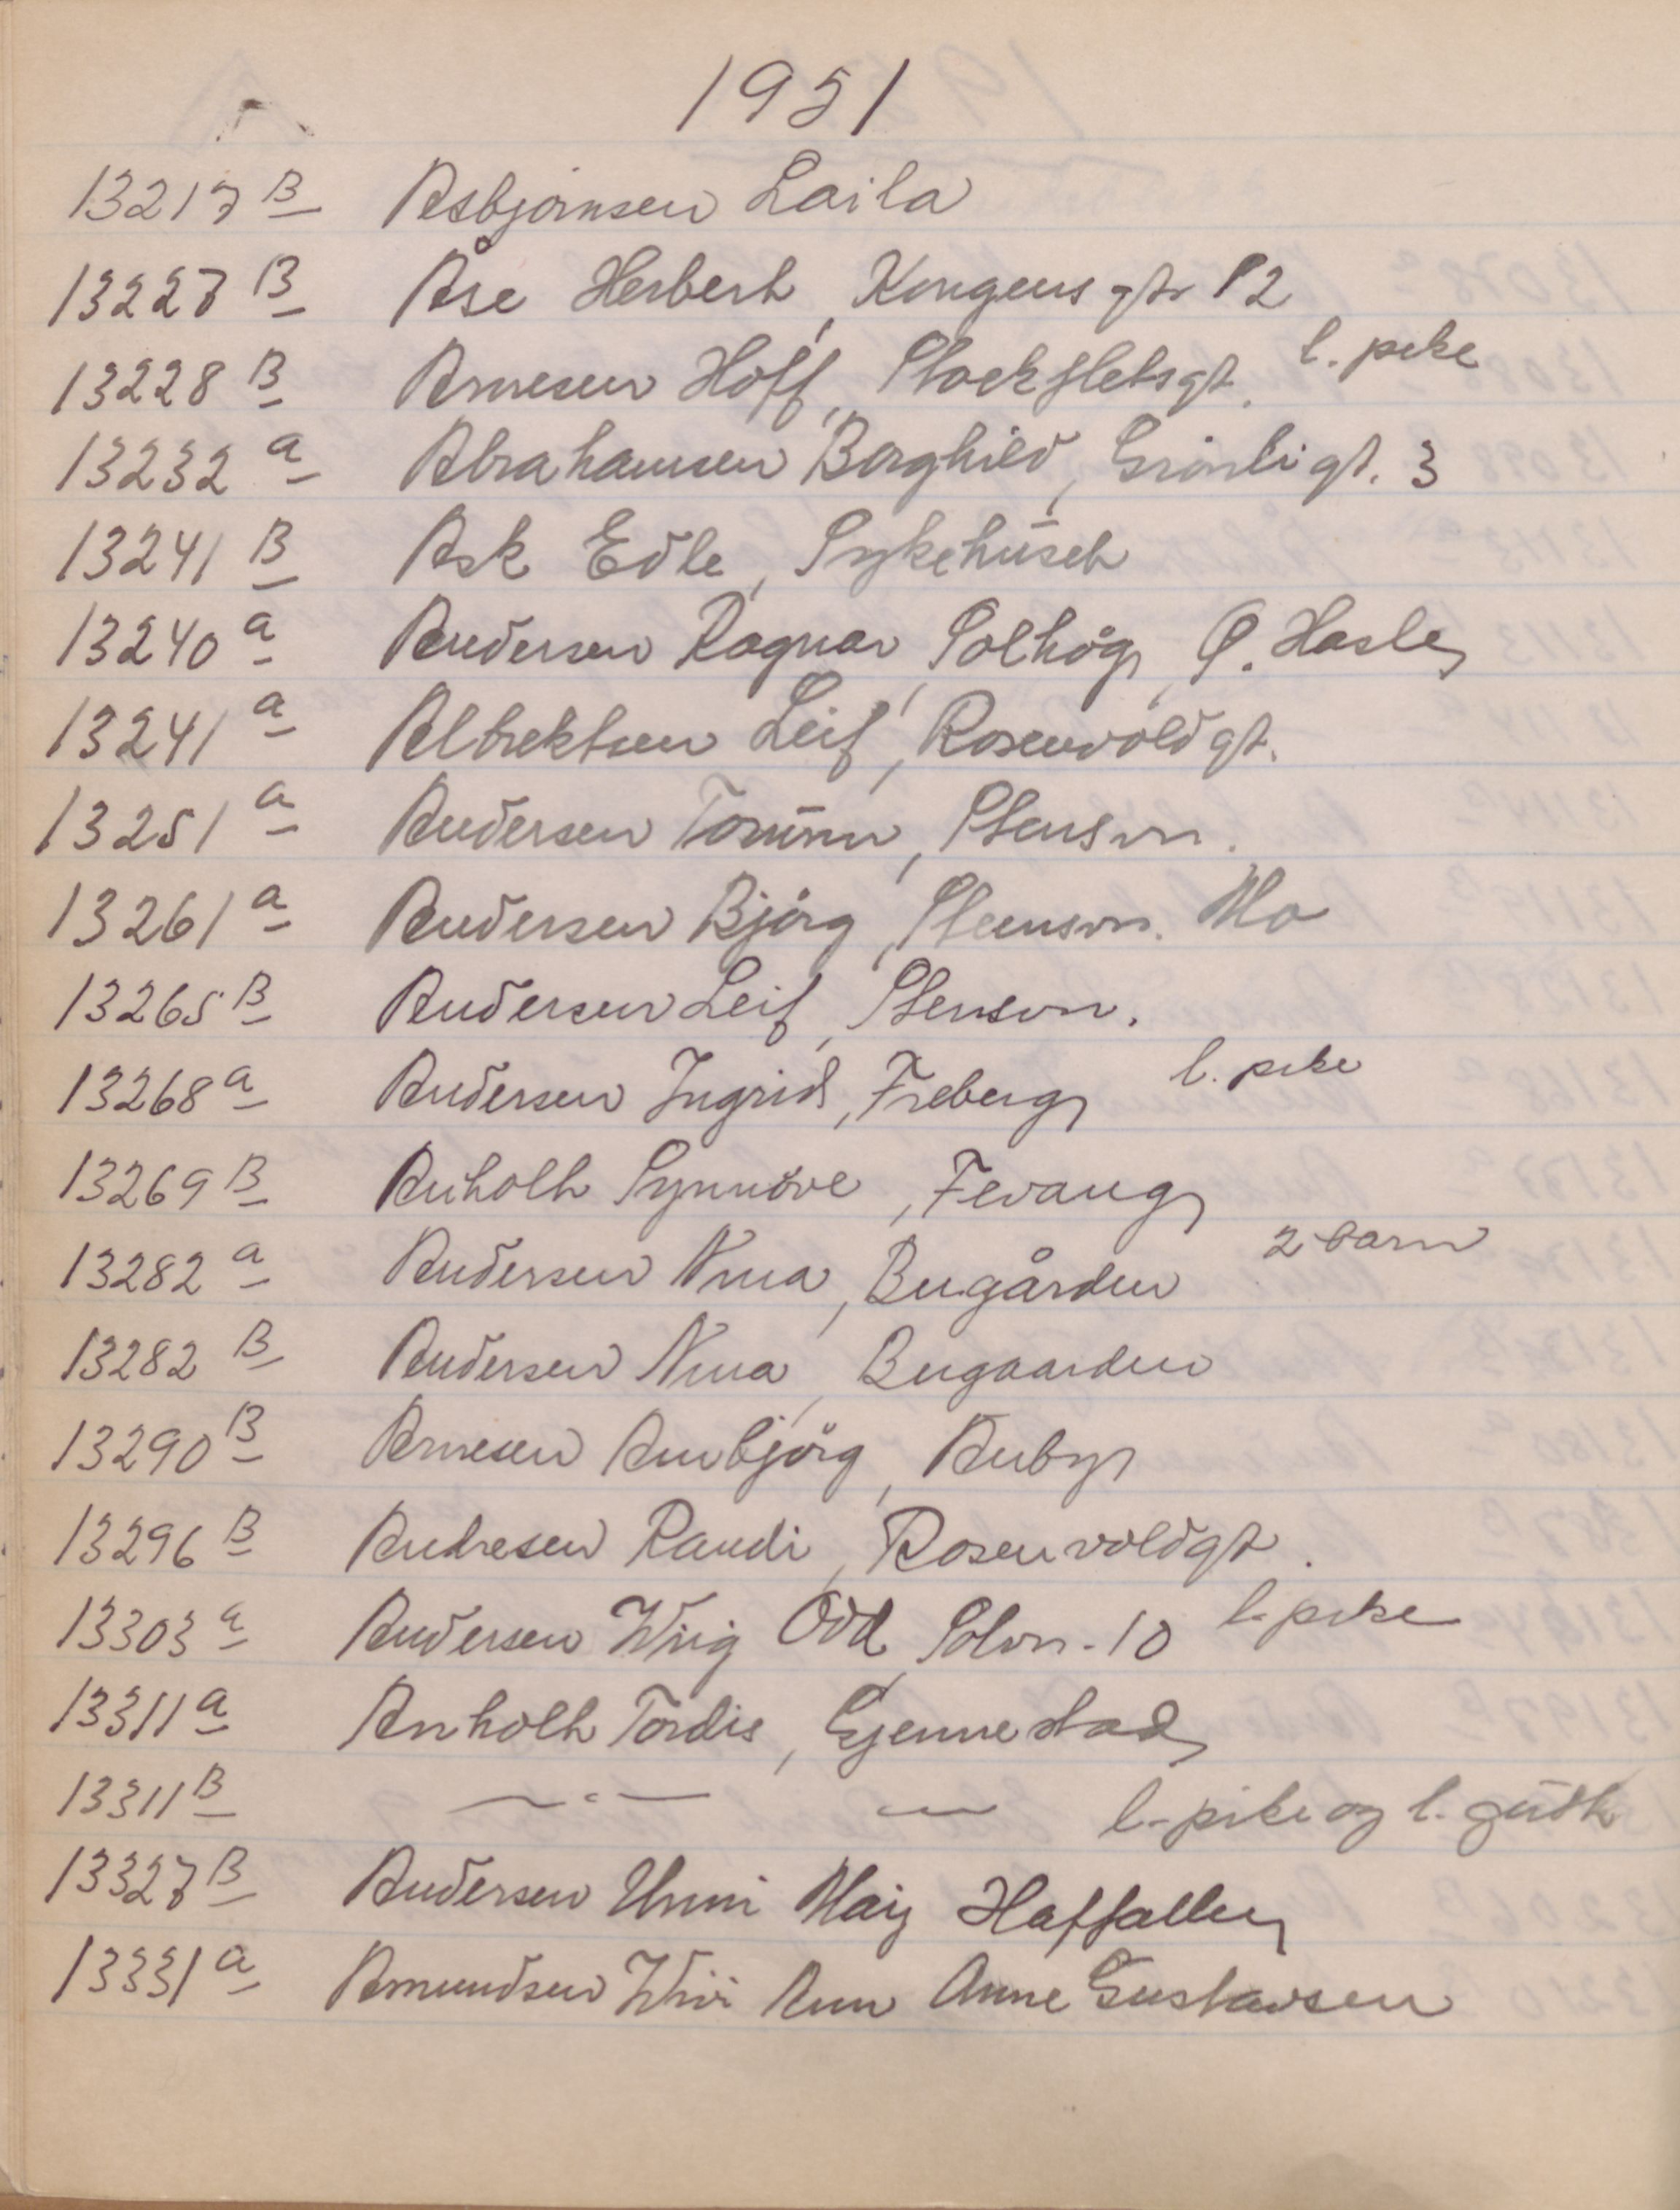 1951
13217 B Asbjørnsen Laila
13227 B Åse Herbert, Kongens gt 12
13228 B Arnesen Hoff, Stockfletsgt. l. pike
13232 a Abrahamsen Borghild, Grønligt. 3
13241 B Ask Edle, Sykehuset
13240 a Andersen Ragnar, Solhøg, Ø. Hasle
13241 a Albrektsen Leif, Rosenvoldgt.
13251 a Andersen Torunn, Stensvn.
13261 a Andersen Bjørg, Steensvn. Mo
13265 B Andersen Leif, Stensvn.
13268 a Andersen Ingrid, Freberg l. pike
13269 B Anholt Synnøve, Fevang
13282 a Andersen Nina, Bugården 2 barn
13282 B Andersen Nina, Bugaarden
13290 B Arnesen Annbjørg, Auby
13296 B Andresen Randi, Rosenvoldgt.
13303 a Andersen Wiig Odd, Solvn. 10 l. pike
13311 a Anholt Tordis, Gjennestad
13311 B — " — — l. pike og l. gutt
13327 B Andersen Unni Maij Haffallen
13331 a Amundsen Wivi Ann Anne Gustavsen